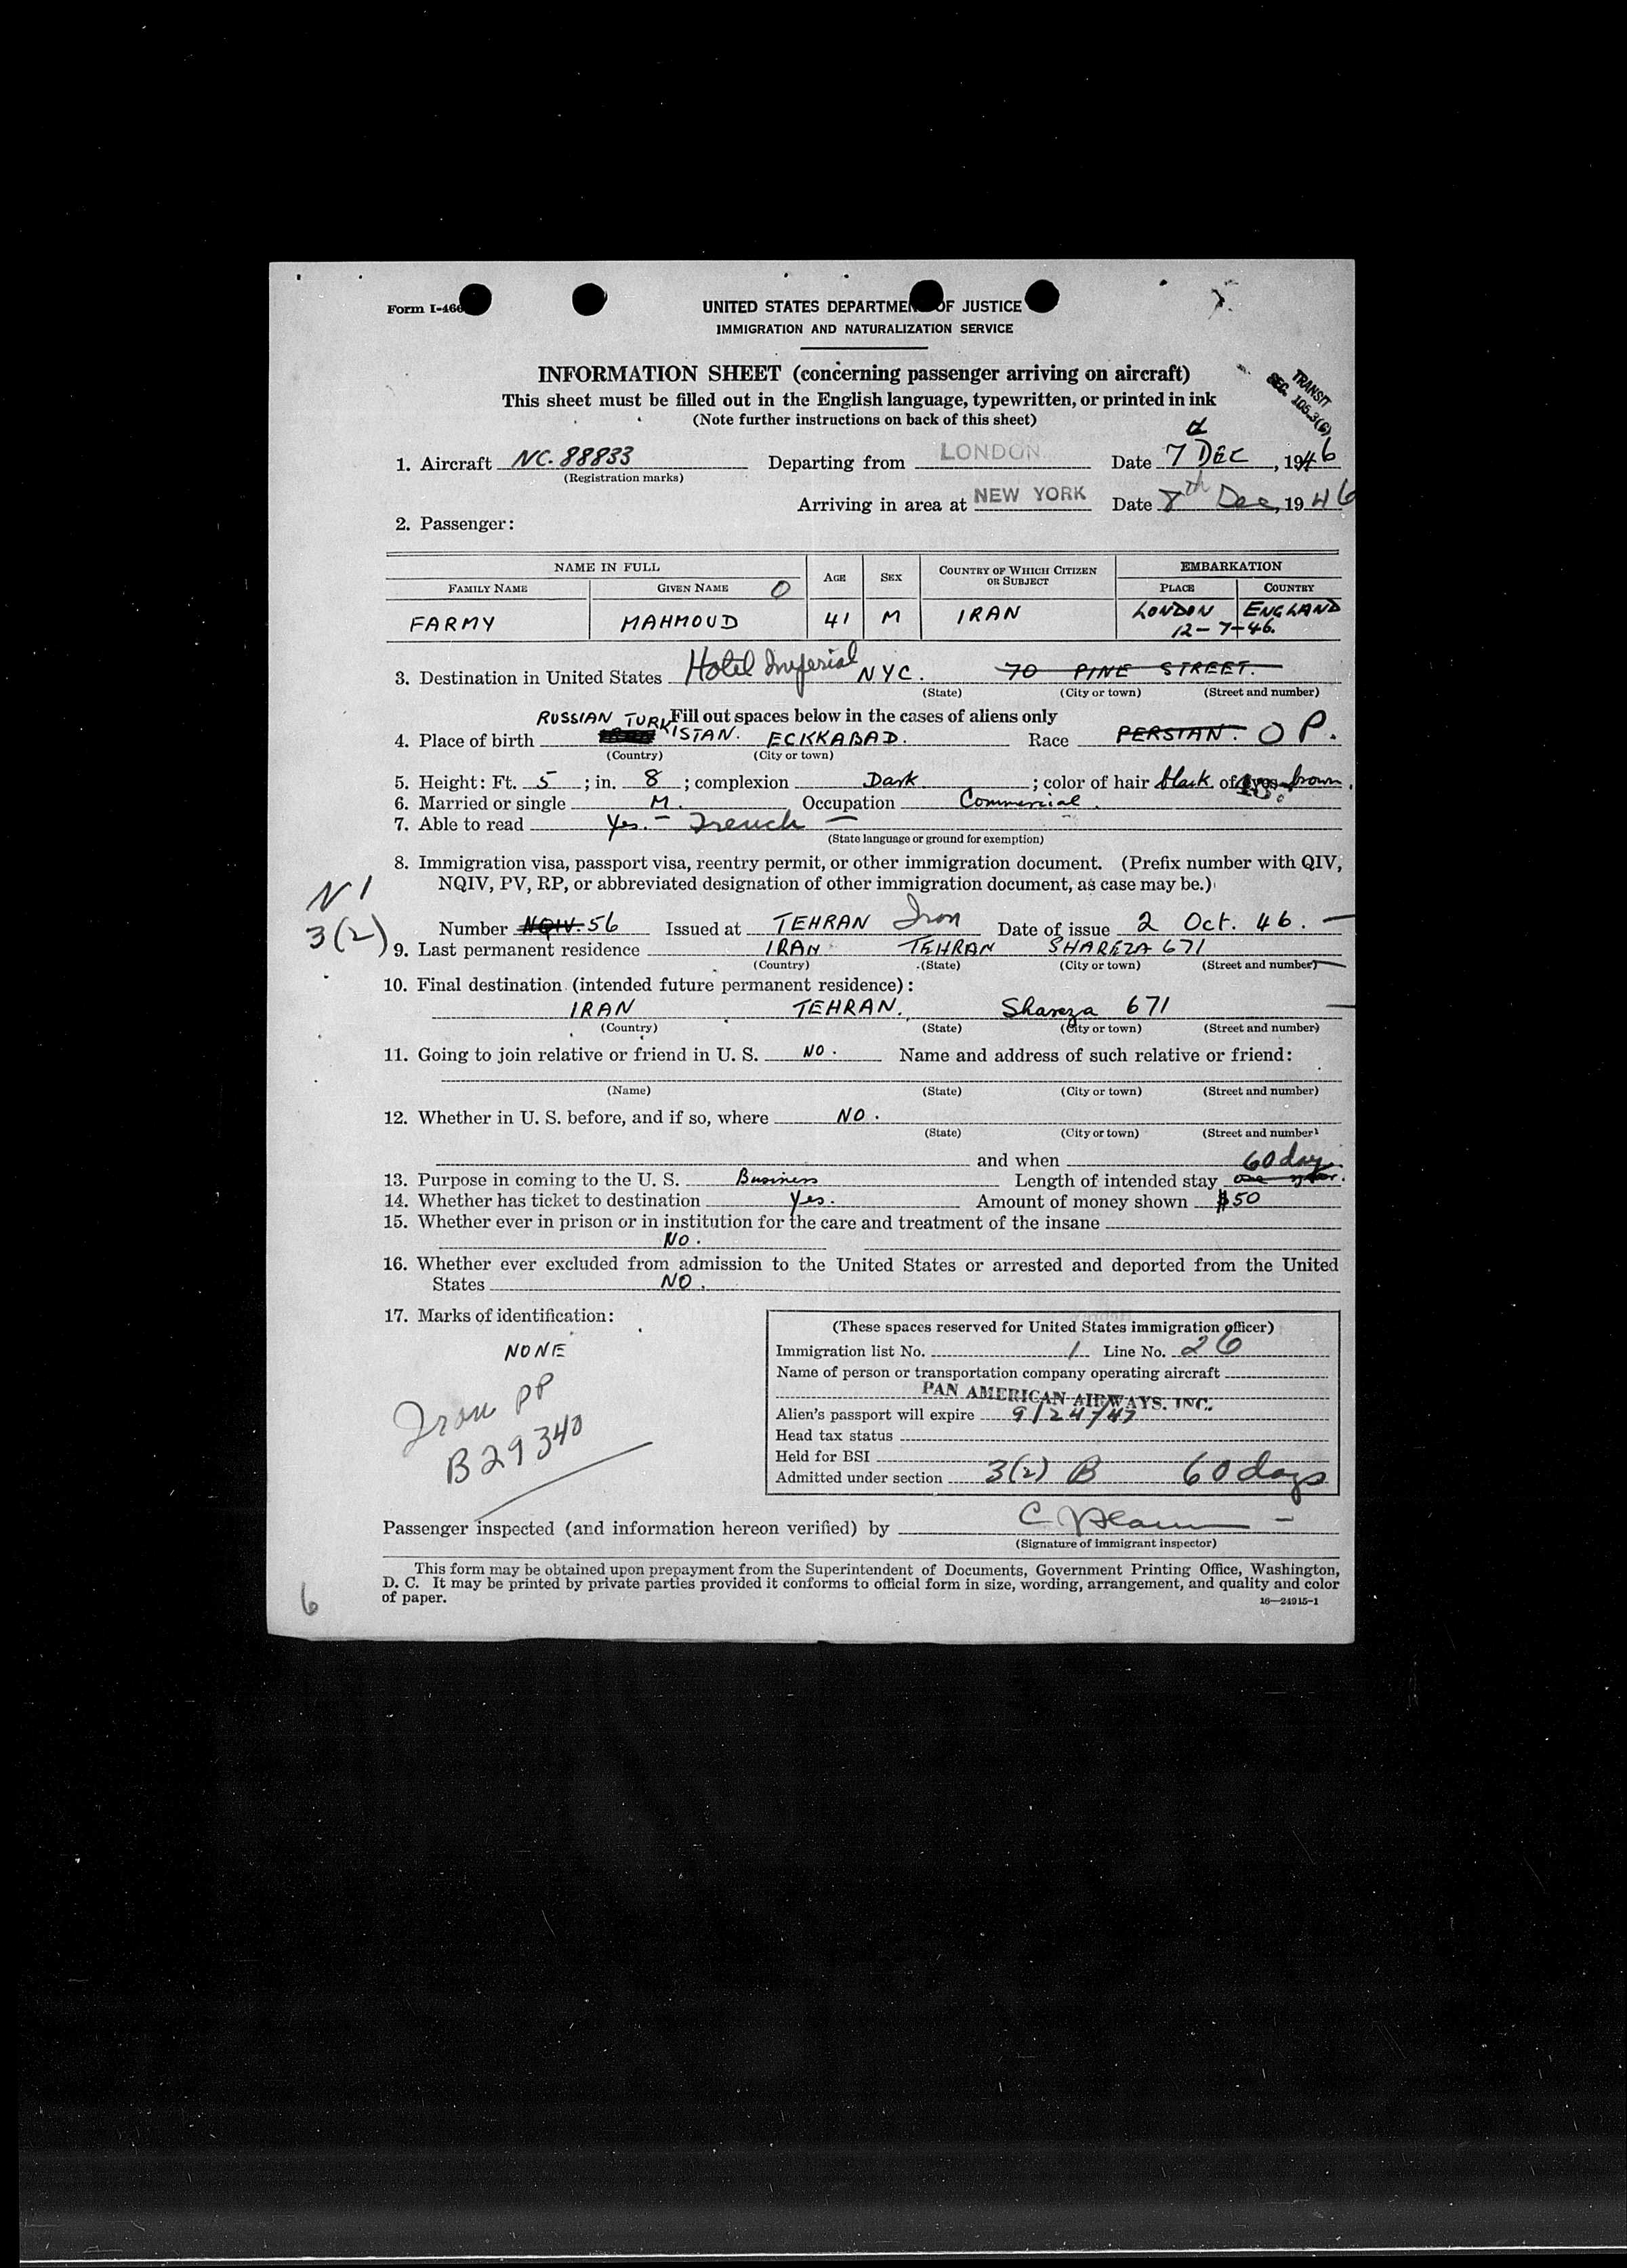 Form I-466
UNITED STATES DEPARTMENT OF JUSTICE
IMMIGRATION AND NATURALIZATION SERVICE
INFORMATION SHEET (concerning passenger arriving on aircraft)
This sheet must be filled out in the English language, typewritten, or printed in ink
(Note further instructions on back of this sheet)
TRANSIT
SEC. 105.3(6)
1. Aircraft NC. 88833 Departing from LONDON Date 7 DEC, 1946
(Registration marks)
Arriving in area at NEW YORK Date 8th Dec, 1946
2. Passenger:
NAME IN FULL AGE SEX COUNTRY OF WHICH CITIZEN OR SUBJECT EMBARKATION
FAMILY NAME GIVEN NAME O PLACE COUNTRY
FARMY MAHMOUD 41 M IRAN LONDON ENGLAND
12-7-46.
3. Destination in United States Hotel Imperial NYC. 70 PINE STREET.
(State) (City or town) (Street and number)
RUSSIAN TURKISTAN. Fill out spaces below in the cases of aliens only
4. Place of birth ECKKABAD. Race PERSIAN. O P.
(Country) (City or town)
5. Height: Ft. 5; in. 8; complexion Dark; color of hair black of eyes brown.
6. Married or single M. Occupation Commercial.
7. Able to read Yes. - French -
(State language or ground for exemption)
8. Immigration visa, passport visa, reentry permit, or other immigration document. (Prefix number with QIV,
NQIV, PV, RP, or abbreviated designation of other immigration document, as case may be.)
N 1
3(2)
Number NQIV. 56 Issued at TEHRAN Iran Date of issue 2 Oct. 46. -
9. Last permanent residence IRAN TEHRAN SHAREZA 671
(Country) (State) (City or town) (Street and number)
10. Final destination (intended future permanent residence):
IRAN TEHRAN. Shareza 671
(Country) (State) (City or town) (Street and number)
11. Going to join relative or friend in U. S. NO. Name and address of such relative or friend:
(Name) (State) (City or town) (Street and number)
12. Whether in U. S. before, and if so, where NO.
(State) (City or town) (Street and number)
and when
60 days
13. Purpose in coming to the U. S. Business Length of intended stay one year.
14. Whether has ticket to destination Yes. Amount of money shown $50
15. Whether ever in prison or in institution for the care and treatment of the insane
NO.
16. Whether ever excluded from admission to the United States or arrested and deported from the United
States NO.
17. Marks of identification:
NONE
Iran PP
B29340
(These spaces reserved for United States immigration officer)
Immigration list No. 1 Line No. 26
Name of person or transportation company operating aircraft
PAN AMERICAN AIRWAYS, INC.
Alien's passport will expire 9/24/47
Head tax status
Held for BSI
Admitted under section 3(2) B 60 days
Passenger inspected (and information hereon verified) by
(Signature of immigrant inspector)
This form may be obtained upon prepayment from the Superintendent of Documents, Government Printing Office, Washington,
D. C. It may be printed by private parties provided it conforms to official form in size, wording, arrangement, and quality and color
of paper.
16—24915-1
6